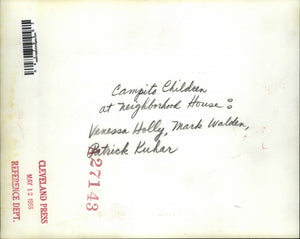 Campito Children
at Neighborhood House:
Vanessa Holly, Mark Walden,
Patrick Kuhar
27143
CLEVELAND PRESS
MAY 12 1965
REFERENCE DEPT.